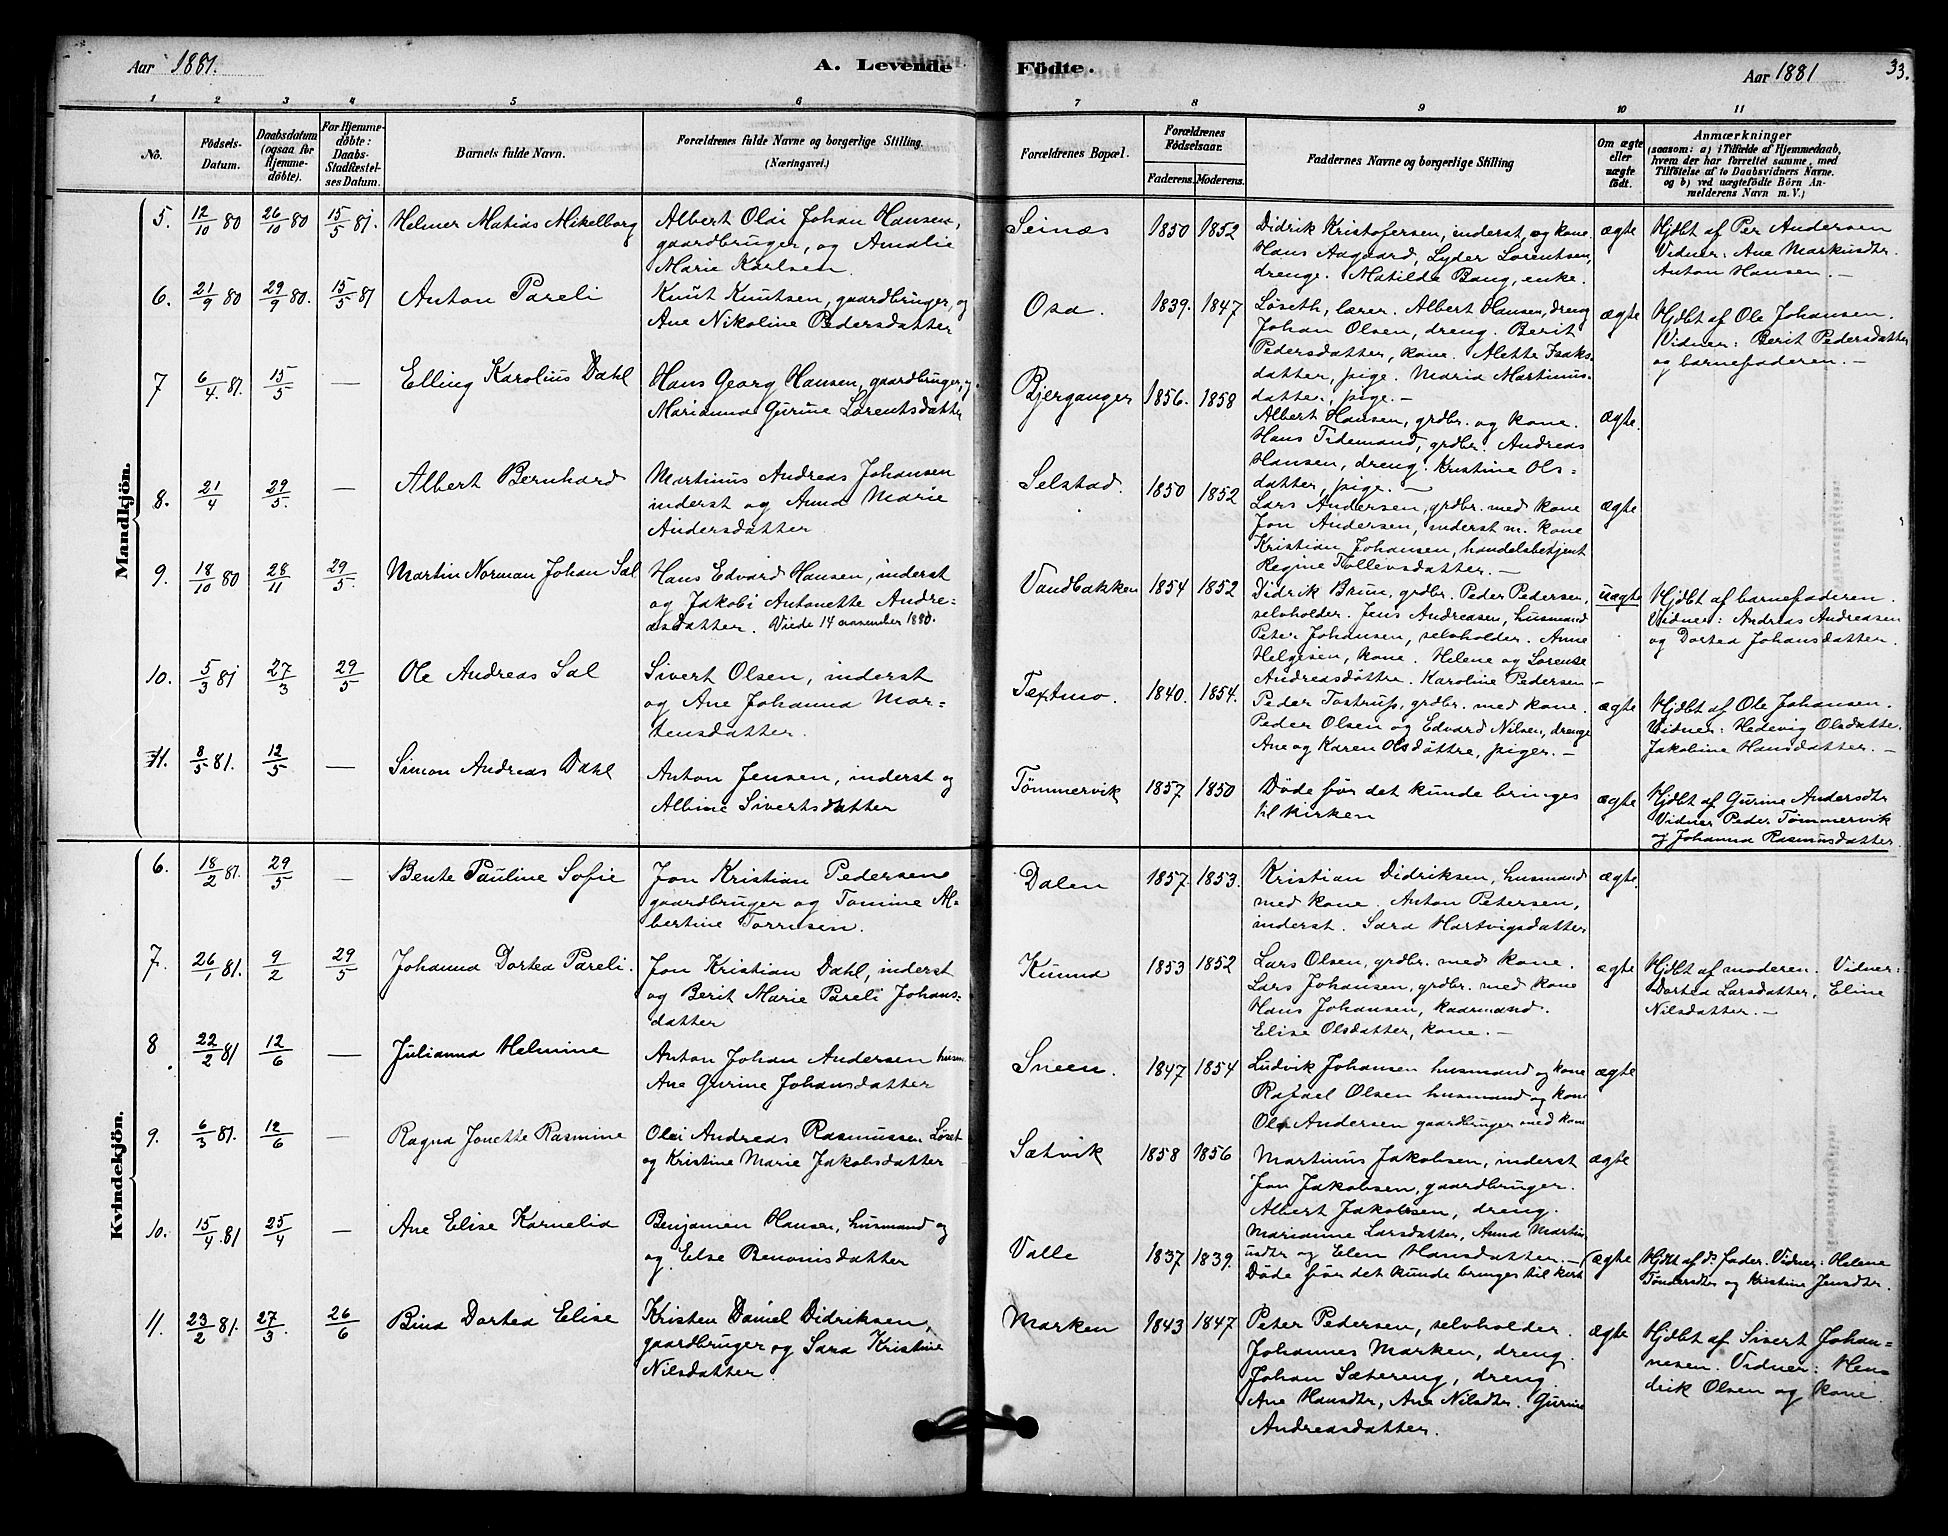 Aar 1881.
A. Levende Födte.
Aar 1881
33.
1 2 3 4 5 6 7 8 9 10 11
No.
Födsels-
Datum.
Daabsdatum
(ogsaa for
Hjemme-
døbte).
For Hjemme-
døbte:
Daabs-
Stadfæstel-
ses Datum.
Barnets fulde Navn.
Forældrenes fulde Navne og borgerlige Stilling.
(Næringsvei.)
Forældrenes Bopæl.
Forældrenes
Födselsaar.
Faderens. Moderens.
Faddernes Navne og borgerlige Stilling
Om ægte
eller
uægte
født.
Anmærkninger
(saasom: a) i Tilfælde af Hjemmedaab,
hvem der har forrettet samme, med
Tilføielse af to Daabsvidners Navne.
og b) ved uægtefødte Börn An-
melderens Navn m. V.;)
Mandkjön.
5. 12/10 80 26/10 80 15/5 81. Helmer Matias Mikelborg
Albert Olai Johan Hansen,
gaardbruger, og Amalie
Marie Karlsen.
Seinæs 1850 1852
Didrik Kristofersen, inderst og kone.
Hans Aagaard, Lyder Lorentsen,
drenge. Matilde Bang, enke.
ægte
Hjdbt af Per Andersen
Vidner: Ane Markusdtr.
Anton Hansen. —
6. 21/9 80 29/9 80. 15/5 81 Anton Pareli
Knut Knutsen, gaardbruger, og
Ane Nikoline Pedersdatter
Osa. 1839. 1847
Løseth, lærer. Albert Hansen, dreng
Johan Olsen, dreng. Berit
Pedersdatter, kone. Alette Isaks-
datter, pige. Maria Martinus-
datter, pige. —
ægte
Hjdbt af Ole Johansen.
Vidner: Berit Pedersdatter
og barnefaderen. —
7 6/4 81. 15/5 — Elling Karolius Dahl
Hans Georg Hansen, gaardbruger, og
Marianna Gurine Lorentsdatter
Bjerganger 1856. 1858
Albert Hansen, grdbr. og kone.
Hans Tidemand, grdbr. Andreas
Hansen, dreng. Kristine Ols-
datter, pige. —
ægte.
8. 21/4 29/5. — Albert Bernhard
Martinus Andreas Johansen
inderst og Anna Marie
Andersdatter
Selstad. 1850 1852
Lars Andersen, grdbr. med kone
Jon Andersen, inderst m. kone
Kristian Johansen, handelsbetjent
Regine Tollevsdatter. —
ægte
9. 18/10 80 28/11 29/5. Martin Norman Johan Sal
Hans Edvard Hansen, inderst
og Jakobi Antonette Andre-
asdatter. Viede 14 november 1880.
Vandbakken 1854 1852
Didrik Brun, grdbr. Peder Pedersen,
selvholder. Jens Andreasen, husmand
Peter Johansen, selvholder. Anne
Helgesen, kone. Helene og Lorense
Andreasdøttre. Karoline Pedersen —
uægte
Hjdbt af barnefaderen.
Vidner: Andreas Andreasen
og Dortea Johansdatter.
10. 5/3 81 27/3 29/5 Ole Andreas Sal
Sivert Olsen, inderst
og Ane Johanna Mor-
tensdatter.
Textmo. 1840. 1854.
Peder Tostrup, grdbr. med kone.
Peder Olsen og Edvard Nilsen, drenge
Ane og Karen Olsdøttre, piger. —
ægte
Hjdbt af Ole Johansen.
Vidner: Hedevig Olsdatter
Jakoline Hansdatter. —
11. 8/5 81. 12/5 — Simon Andreas Dahl
Anton Jensen, inderst og
Albine Sivertsdatter
Tømmervik 1857 1850
Døde før det kunde bringes
til kirken
ægte
Hjdbt af Gurine Andersdtr
Vidner Peder Tømmervik
og Johanna Rasmusdatter
Kvindekjön.
6. 18/2 81. 29/5 — Bente Pauline Sofie
Jon Kristian Pedersen
gaardbruger og Tomine Al-
bertine Torrisen.
Dalen 1857 1853.
Kristian Didriksen, husmand
med kone. Anton Petersen,
inderst. Sara Hartvigsdatter
ægte.
7. 26/1 81. 9/2 29/5 Johanna Dortea Pareli.
Jon Kristian Dahl, inderst
og Berit Marie Pareli Johans-
datter
Kunna 1853 1852
Lars Olsen, grdbr. med kone.
Lars Johansen, grdbr. med kone
Hans Johansen, kaarmand.
Elise Olsdatter, kone. —
ægte
Hjdbt af moderen. Vidner:
Dortea Larsdatter, Eline
Nilsdatter. —
8 22/2 81 12/6 — Julianna Helmine
Anton Johan Andersen husm.
Ane Gurine Johansdatter
Sneen. 1847 1854
Ludvik Johansen husmand og kone
Rafael Olsen husmand og kone
Ole Andersen gaardbruger med kone
ægte
9. 6/3 81. 12/6 — Ragna Jonette Rasmine
Olai Andreas Rasmussen Løset
og Kristine Marie Jakobsdatter
Sætvik 1858 1856
Martinus Jakobsen, inderst
Jon Jakobsen, gaardbruger.
Albert Jakobsen, dreng.
Marianne Larsdatter, Anna Martin
usdtr og Elen Hansdatter. —
ægte
10. 15/4 81 25/4 — Ane Elise Kornelia
Benjamin Hansen, husmand og
og Else Benonisdatter
Valle 1837 1839.
Døde før det kunde bringes til kirk
ægte
Hjdbt af ds fader. Vidner: Helene
Tøndersdtr og Kristine Jensdtr.
11. 23/2 81. 27/3. 26/6 Bina Dortea Elise
Kristen Daniel Didriksen,
gaardbruger og Sara Kristine
Nilsdatter.
Marken 1843 1847
Peter Pedersen, selvholder.
Johannes Marken, dreng.
Johan Sætereng, dreng.
Ane Hansdtr, Ane Nilsdtr. Gurine
Andreasdatter.
ægte
Hjdbt af Sivert Johan-
nesen. Vidner: Hen-
drik Olsen og kone